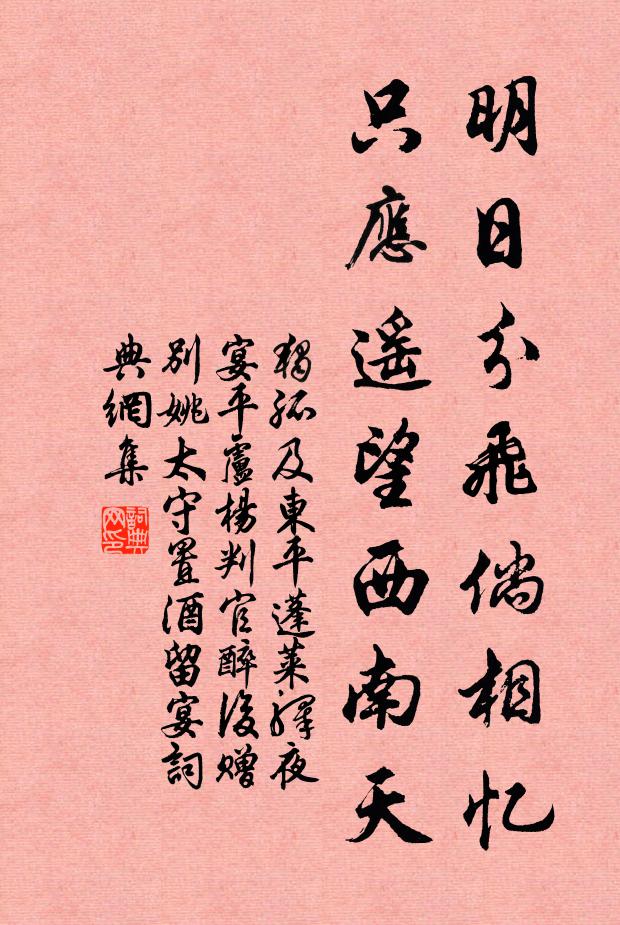 明日分飛倘相忆
只應遥望西南天
獨孤及東平蓬萊驛夜
宴平盧楊判官醉後赠
别姚太守置酒留宴詞
典網集
詞典
网印